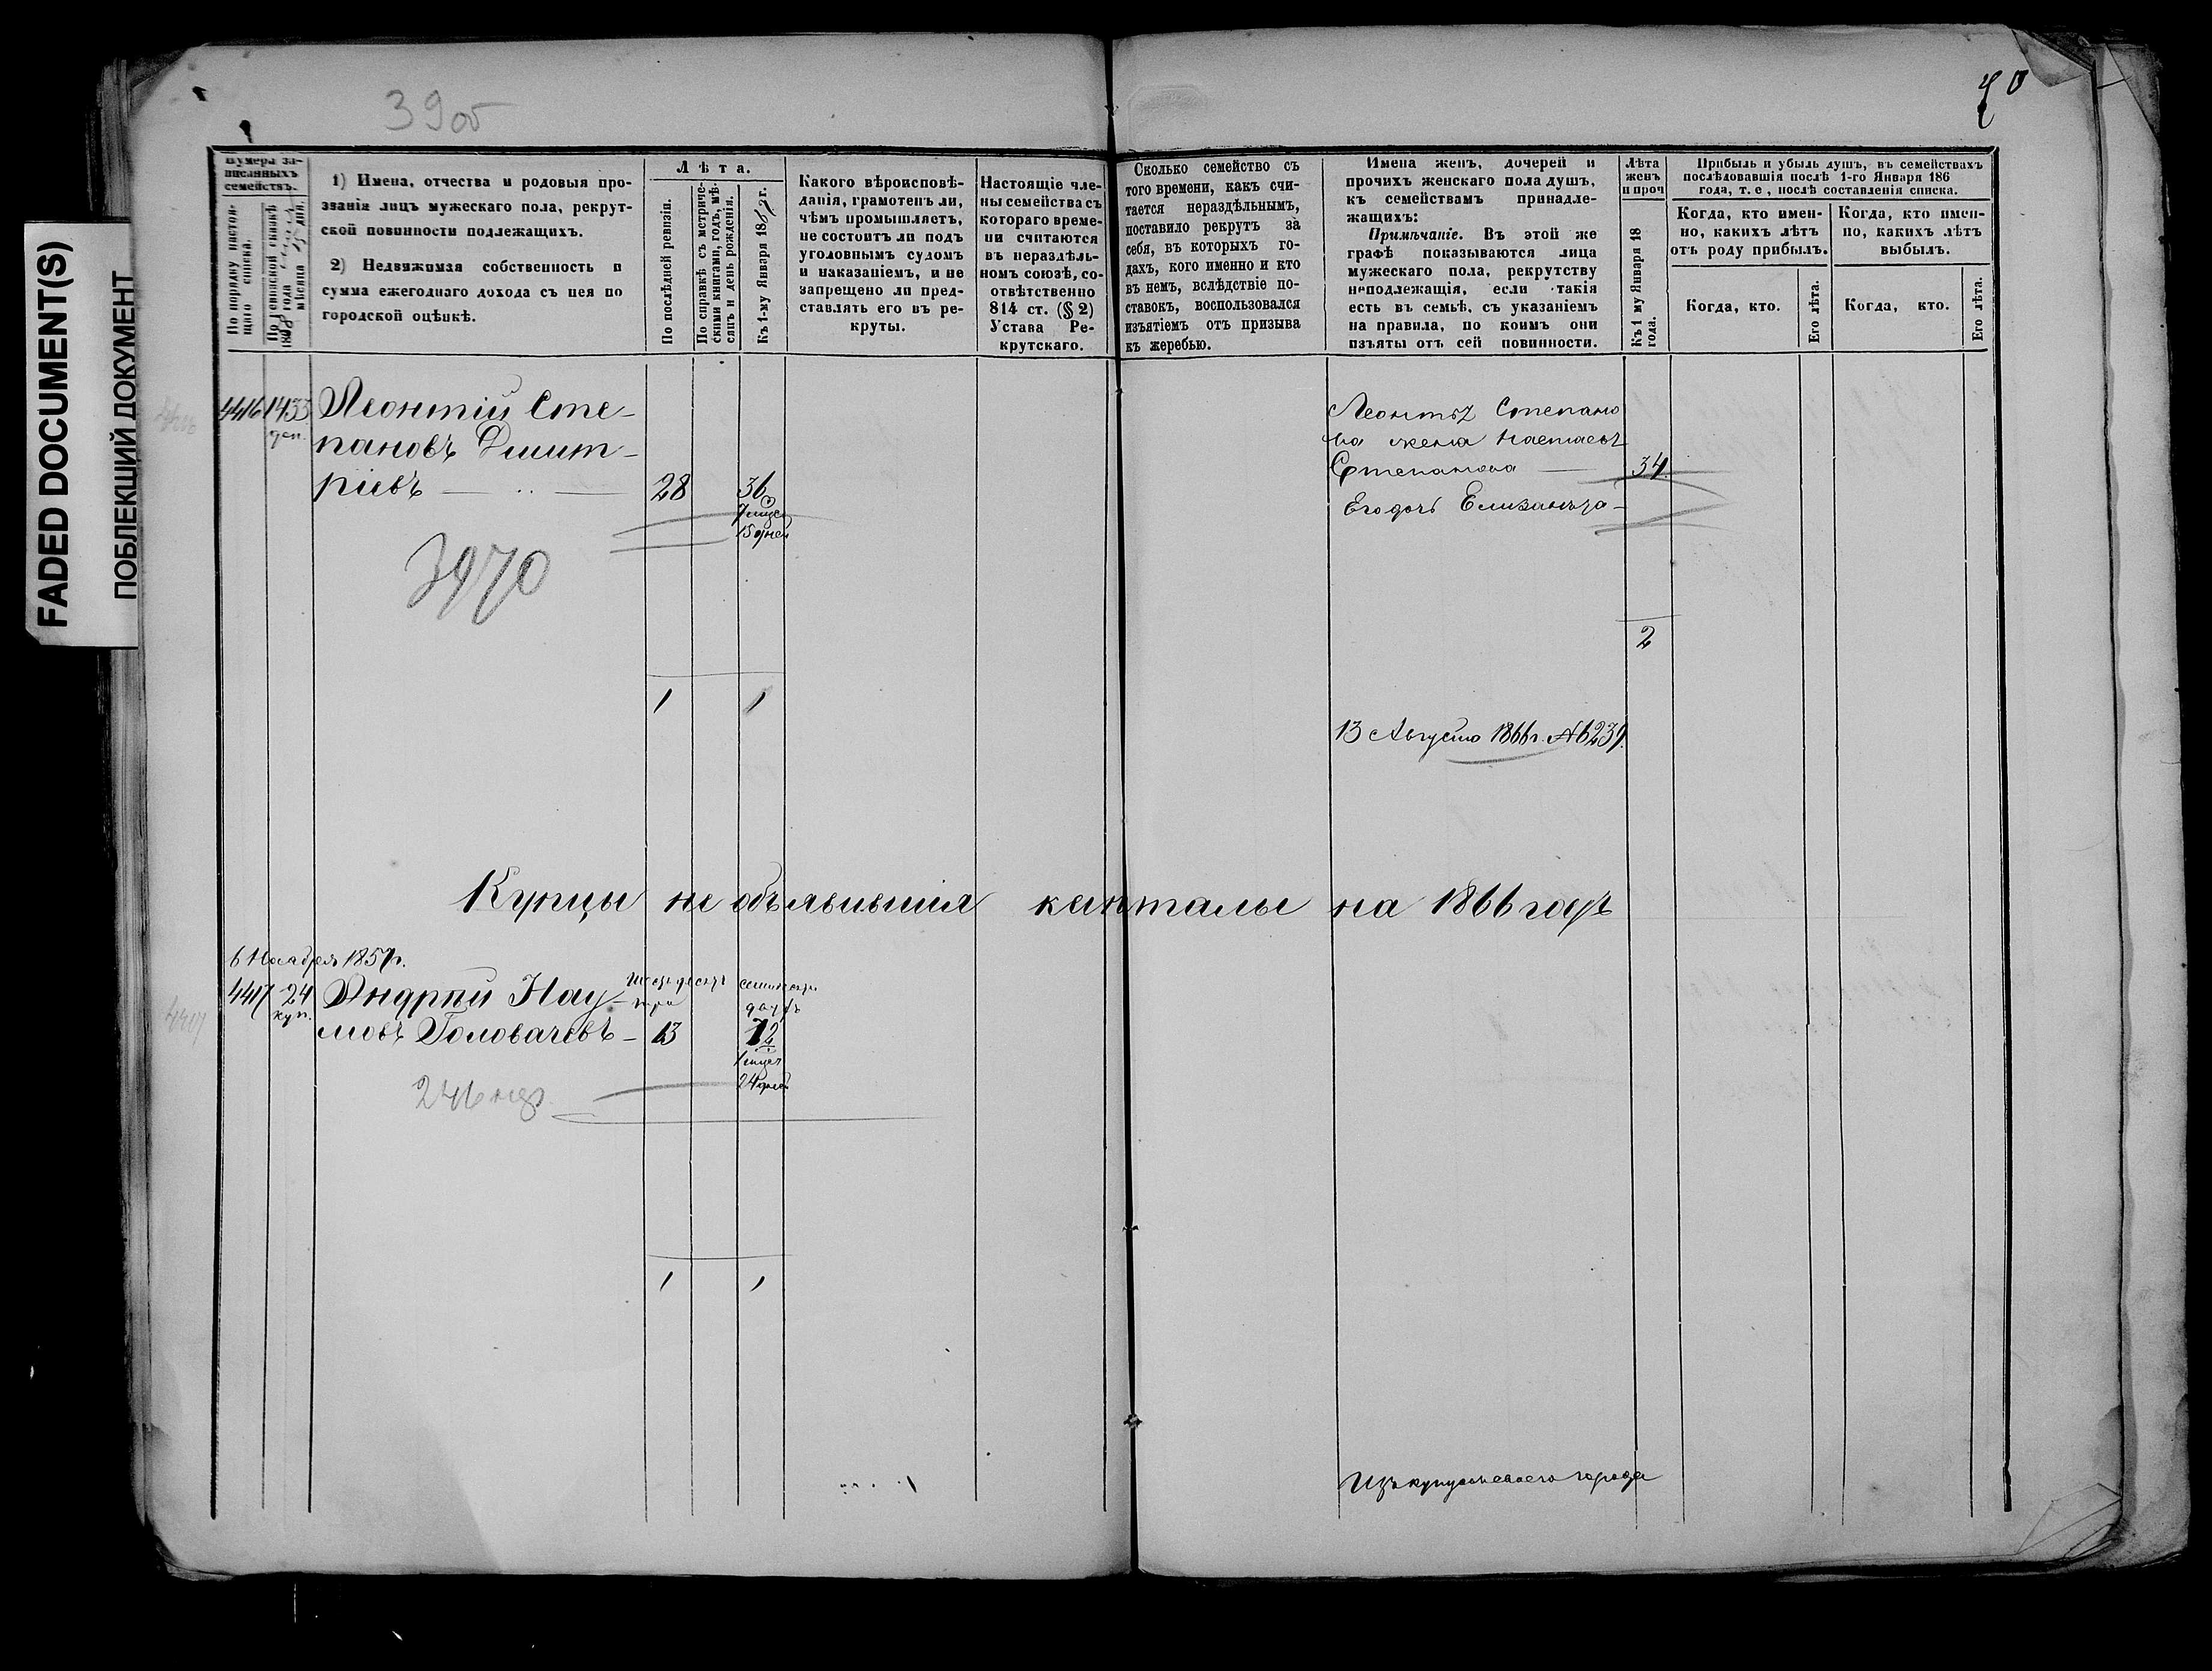 FADED DOCUMENT(S)
ПОБЛЕКШИЙ ДОКУМЕНТ
39об
40
Нумера за-
писанныхъ
семействъ.
По порядку настоя-
щаго списка.
По ревизской сказкѣ
1858 года
мѣсяца 15 дня.
1) Имена, отчества и родовыя про-
званія лицъ мужескаго пола, рекрут-
ской повинности подлежащихъ.
2) Недвижимая собственность и
сумма ежегоднаго дохода съ нея по
городской оцѣнкѣ.
Лѣта.
По послѣдней ревизіи.
По справкѣ съ метриче-
скими книгами, годъ, мѣ-
сяцъ и день рожденія.
Къ 1-му Января 186 г.
Какого вѣроисповѣ-
данія, грамотенъ ли,
чѣмъ промышляетъ,
не состоитъ ли подъ
уголовнымъ судомъ
и наказаніемъ, и не
запрещено ли пред-
ставлять его въ ре-
круты.
Настоящіе чле-
ны семейства съ
котораго време-
ни считаются
въ нераздѣль-
номъ союзѣ, со-
отвѣтственно
814 ст. (§ 2)
Устава Ре-
крутскаго.
Сколько семейство съ
того времени, какъ счи-
тается нераздѣльнымъ,
поставило рекрутъ за
себя, въ которыхъ го-
дахъ, кого именно и кто
въ немъ, вслѣдствіе по-
ставокъ, воспользовался
изъятіемъ отъ призыва
къ жеребью.
Имена женъ, дочерей и
прочихъ женскаго пола душъ,
къ семействамъ принадле-
жащихъ:
Примѣчаніе. Въ этой же
графѣ показываются лица
мужескаго пола, рекрутству
неподлежащія, если такія
есть въ семьѣ, съ указаніемъ
на правила, по коимъ они
изъяты отъ сей повинности.
Лѣта
женъ
и проч
Къ 1 му Января 18
года.
Прибыль и убыль душъ, въ семействахъ
послѣдовавшія послѣ 1-го Января 186
года, т. е, послѣ составленія списка.
Когда, кто имен-
но, какихъ лѣтъ
отъ роду прибылъ.
Когда, кто имен-
но, какихъ лѣтъ
выбылъ.
Когда, кто.
Его лѣта.
Когда, кто.
Его лѣта.
4416 1433 Леонтій Сте-
доп. пановъ Дмит-
ріевъ — 28 36
7 мѣсе
15 дней
3970
Леонтья Степано
ва жена Настасья
Степанова — 34
Его дочь Елизавета —
2
1 1
13 Августа 1866 г. № 6239.
Купцы не объявившія капталы на 1866 годъ
6 Ноября 1857 г.
4417 24 Андрѣй Нау-
куп. мовъ Головачевъ —
шестьдесятъ
три
13
семьдесятъ
два
72
1 мѣсяц
24 дней
246
4417
1 1
Изъ купцовъ своего города